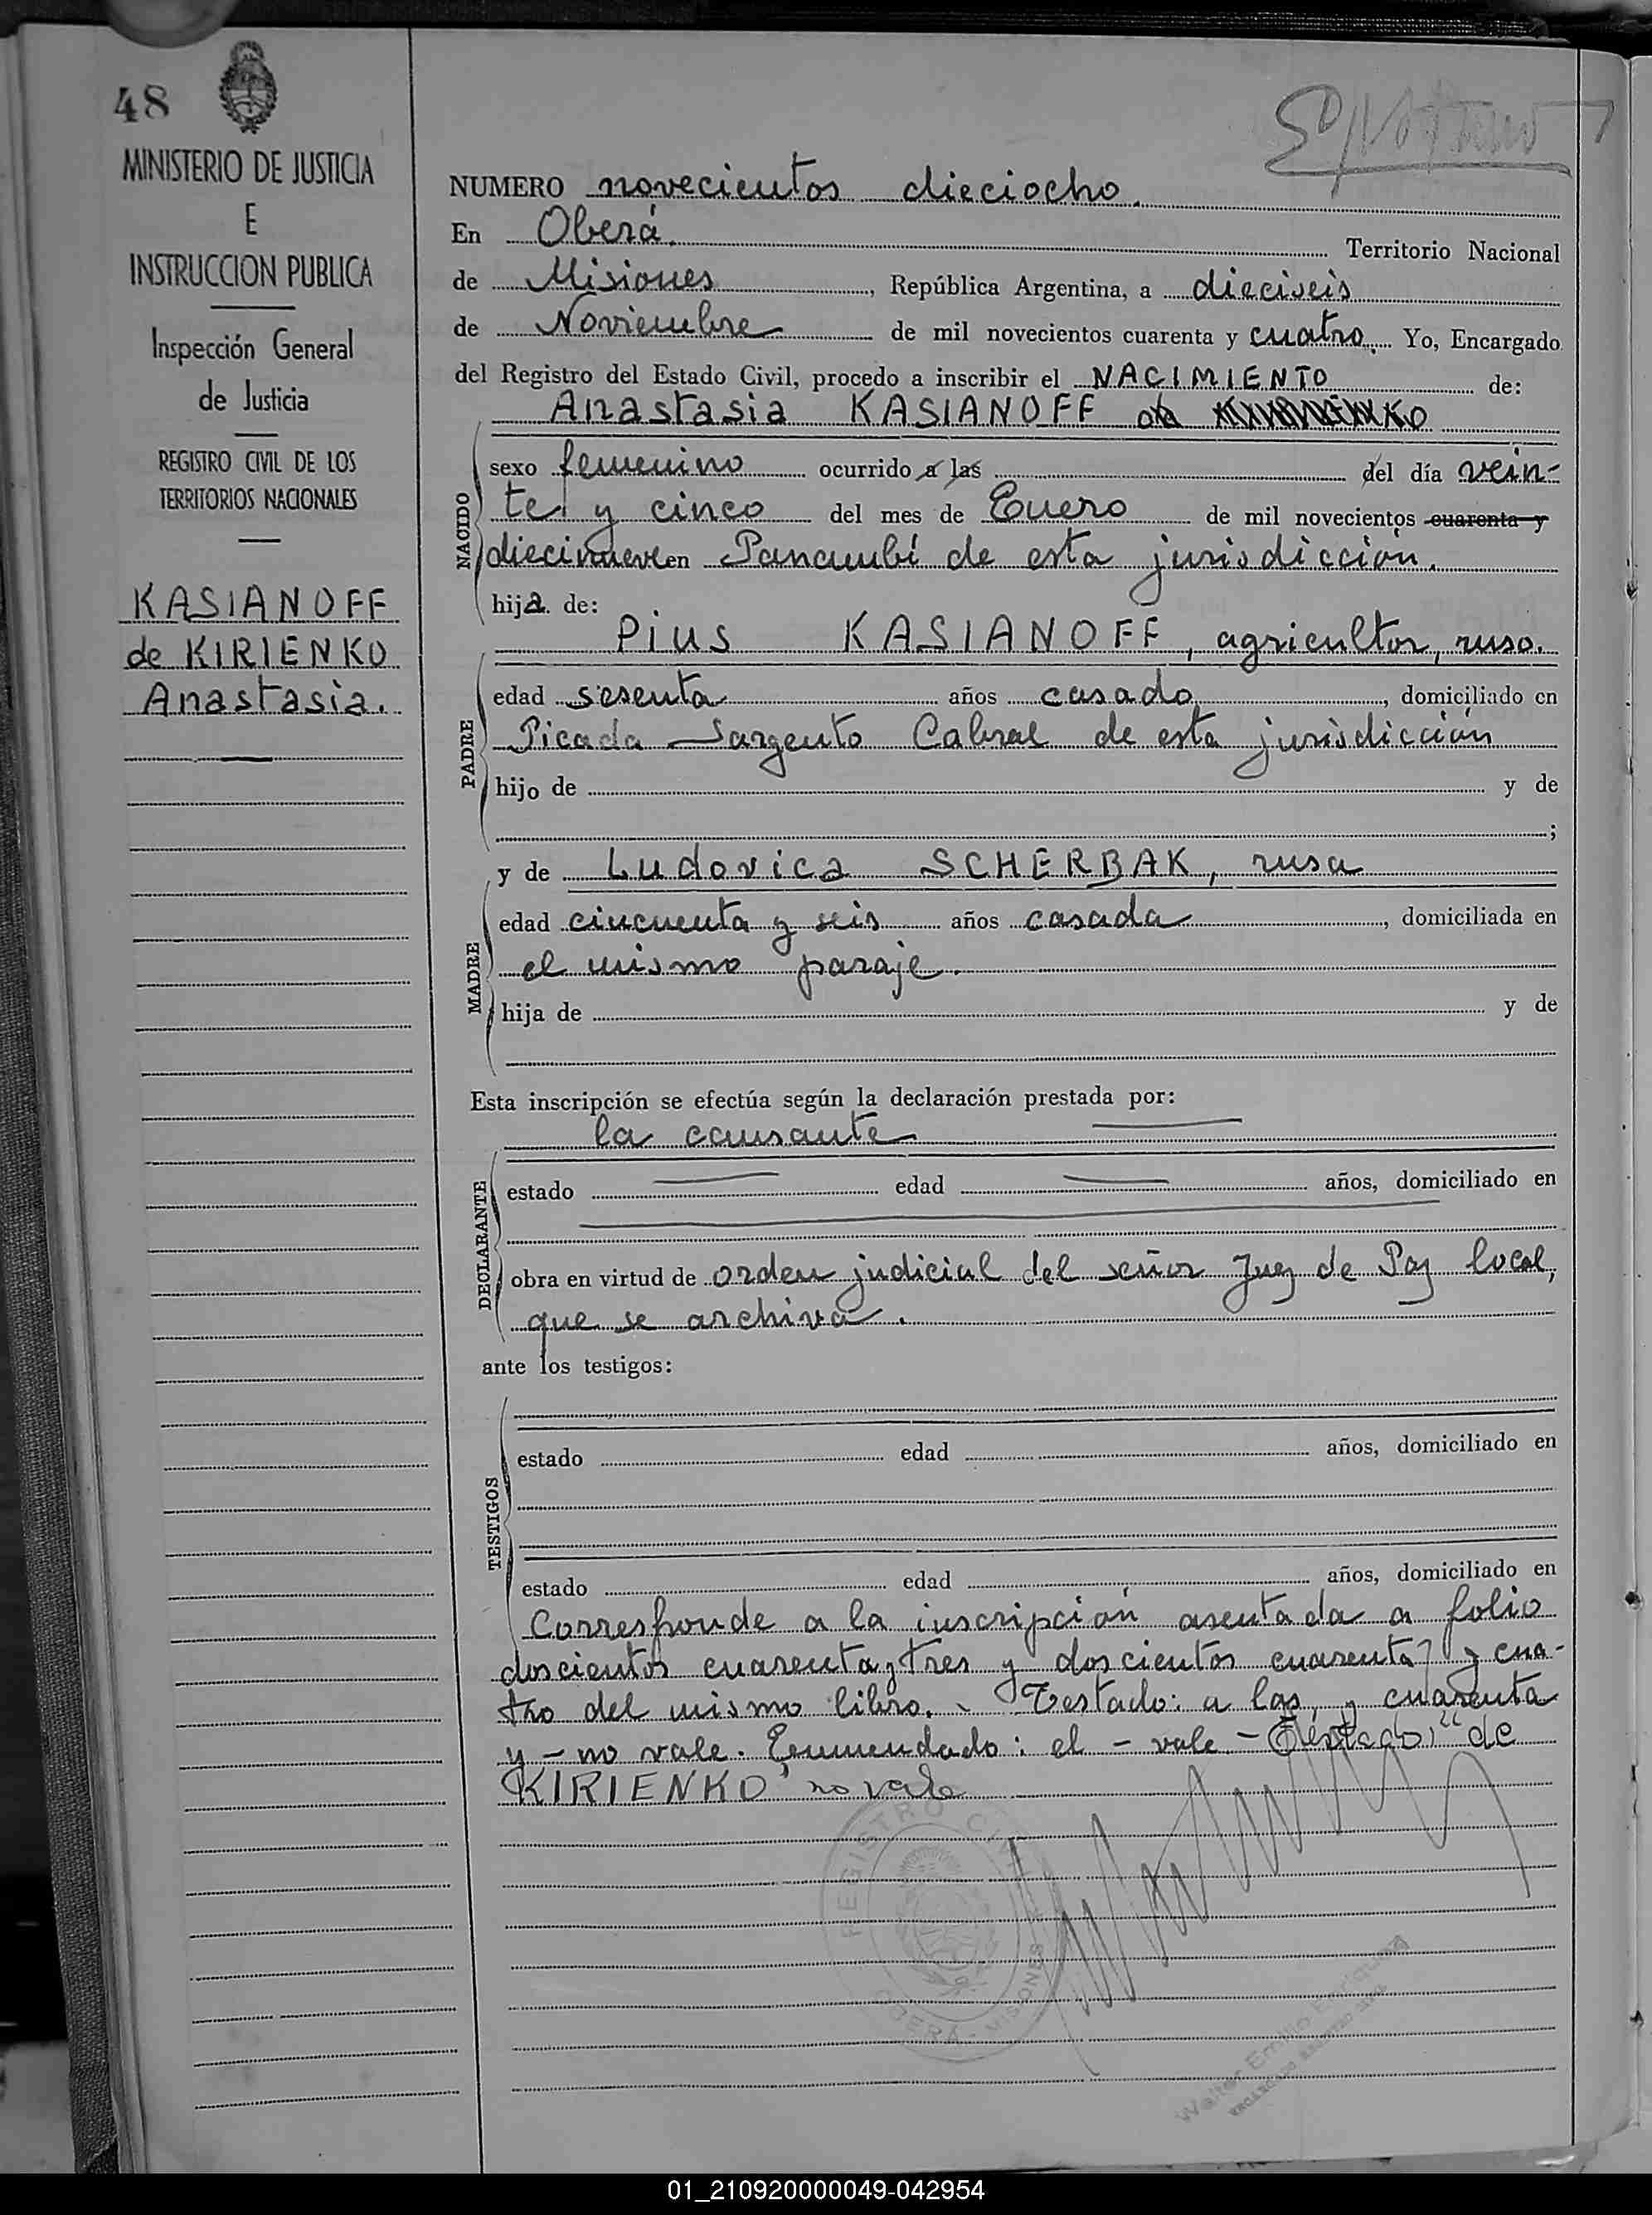 48
MINISTERIO DE JUSTICIA
E
INSTRUCCION PUBLICA
Inspección General
de Justicia
REGISTRO CIVIL DE LOS
TERRITORIOS NACIONALES
KASIANOFF
de KIRIENKO
Anastasia.
NUMERO novecientos dieciocho.
En Oberá. Territorio Nacional
de Misiones, República Argentina, a dieciseis
de Noviembre de mil novecientos cuarenta y cuatro. Yo, Encargado
del Registro del Estado Civil, procedo a inscribir el NACIMIENTO de:
Anastasia KASIANOFF
NACIDO
sexo femenino ocurrido a las del día vein-
te y cinco del mes de Enero de mil novecientos cuarenta y
diecinueve en Panambí de esta jurisdicción.
hija de:
Pius KASIANOFF, agricultor, ruso.
PADRE
edad sesenta años casado, domiciliado en
Picada Sargento Cabral de esta jurisdicción
hijo de y de
;
y de Ludovica SCHERBAK, rusa
MADRE
edad cincuenta y seis años casada, domiciliada en
el mismo paraje.
hija de y de
Esta inscripción se efectúa según la declaración prestada por:
la causante
DECLARANTE
estado edad años, domiciliado en
obra en virtud de orden judicial del señor Juez de Paz local,
que se archiva.
ante los testigos:
TESTIGOS
estado edad años, domiciliado en
estado edad años, domiciliado en
Corresponde a la inscripción asentada a folio
doscientos cuarenta y tres y doscientos cuarenta y cua-
tro del mismo libro. Testado: a las, y cuarenta
y - no vale. Enmendado: el - vale - Testado: "de
KIRIENKO" no vale
REGISTRO CIVIL
OBERÁ - MISIONES
Walter Emilio Enriquez
01_210920000049-042954